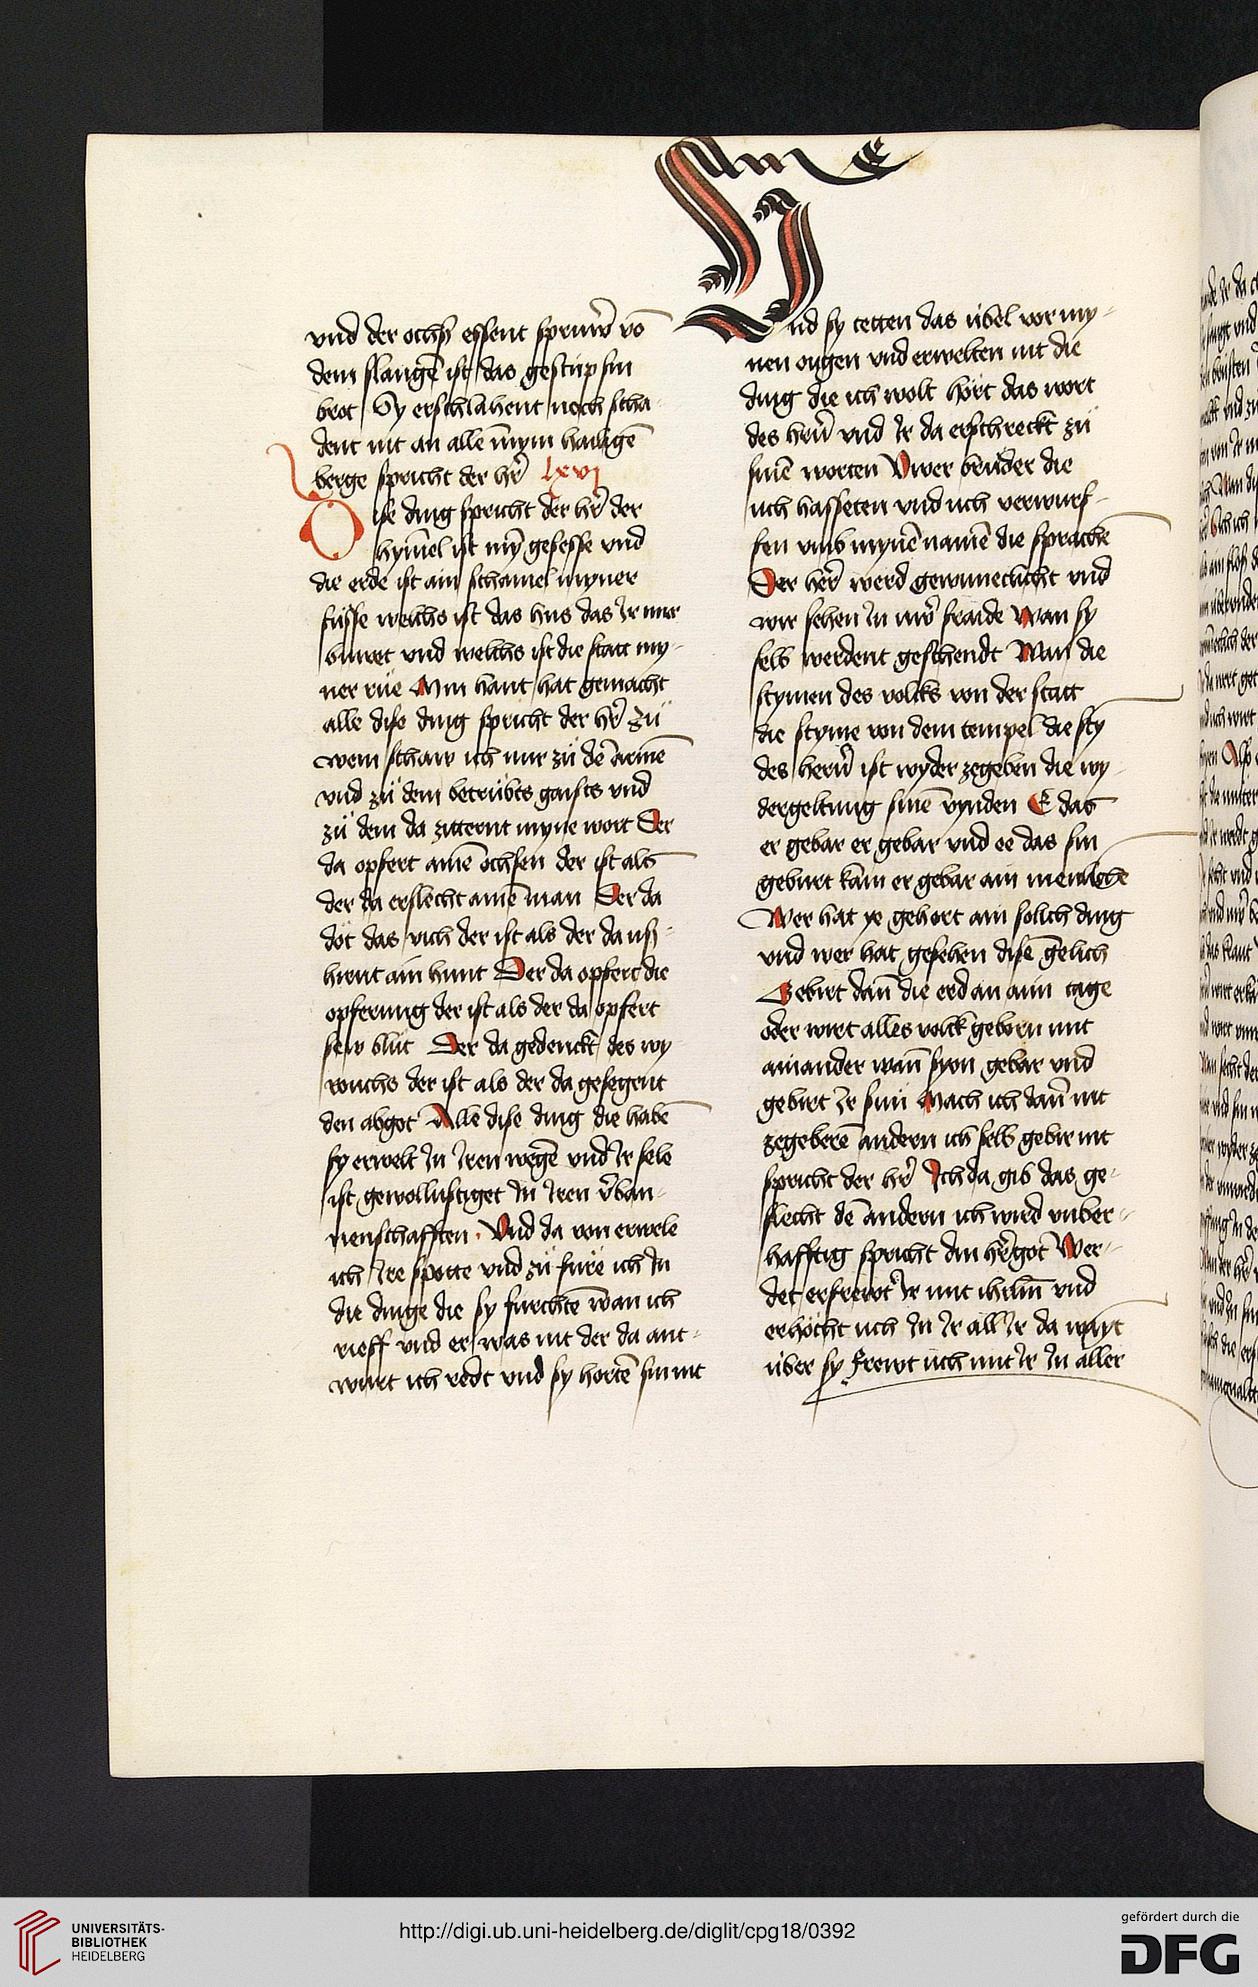 vnd der ochß essent sprüwr vō
dem slangē ist das gestüp sin
brot Sy erschlahent noch scha-
dent nit an allē mym hailigē
berge spricht der hr̄ lxvj
Dise ding spricht der hr̄ der
hym̄el ist my̅ gesesse vnd
die erde ist ain schamel myner
füsse welchs ist das hus das Ir mir
buwet vnd welchs ist die statt my-
ner rue Min hant hat gemacht
alle dise ding spricht der hr̄ zů
wem schaw ich nur zů dē armē
vnd zů dem betrübts gaists vnd
zů dem da zitternt myne wort Der
da opfert ainē ochsen der ist als
der da erslecht ainē man Der da
döt das vich der ist als der da uß-
hirnt ain hunt Der da opfert die
opferung der ist als der da opfert
sew blůt Der da gedenckt des wy-
rouchs der ist als der da gesegent
den abgot Alle dise ding die habē
sy erwelt In Iren wegē vnd Ir sele
ist gewollustiget In Iren v̄ban-
nenschafften. Vnd da von erwele
ich Ire spotte vnd zů füre ich In
die dinge die sy furchtē wan ich
rieff vnd er was nit der da ant-
wurt ich redt vnd sy hortē sin nit
Vnd sy tetten das übel vor my-
nen ougen vnd erwelten nit die
ding die ich wolt hört das wort
des hern̄ vnd Ir da erschreckt zů
sinē worten Vwer brüder die
uch hasseten vnd uch verwurf-
fen vmb mynē namē die sprachē
Der herr̄ werd gewunnclicht vnd
wir sehen In uwr̄ fraide Wan sy
selb werdent geschendt Wan die
stymen des volcks von der statt
die styme von dem tempel die sty
des hern̄ ist wyder zegeben die wy-
dergeltung sinē vynden E das
er gebar er gebar vnd ee das sin
geburt kam er gebar ain menliche
Wer hat ye gehort ain sollich ding
vnd wer hat gesehen disē gelich
Gebirt dan̄ die erd an aim tage
oder wirt alles volck geborn mit
ainander wan̄ syon gebar vnd
gebirt Ir sün Mach ich dan̄ nit
zegeberē andern ich selb gebir nit
spricht der hr̄ Ich da gib das ge-
slecht dē andern ich wird vnber-
hafftig spricht din hr̄ got Wer-
det erfrewt Ir mit ihrlm̄ vnd
erhöcht uch In Ir all Ir da waynt
über sy Frewt uch mit Ir In aller
UNIVERSITÄTS-
BIBLIOTHEK
HEIDELBERG
http://digi.ub.uni-heidelberg.de/diglit/cpg18/0392
gefördert durch die
DFG